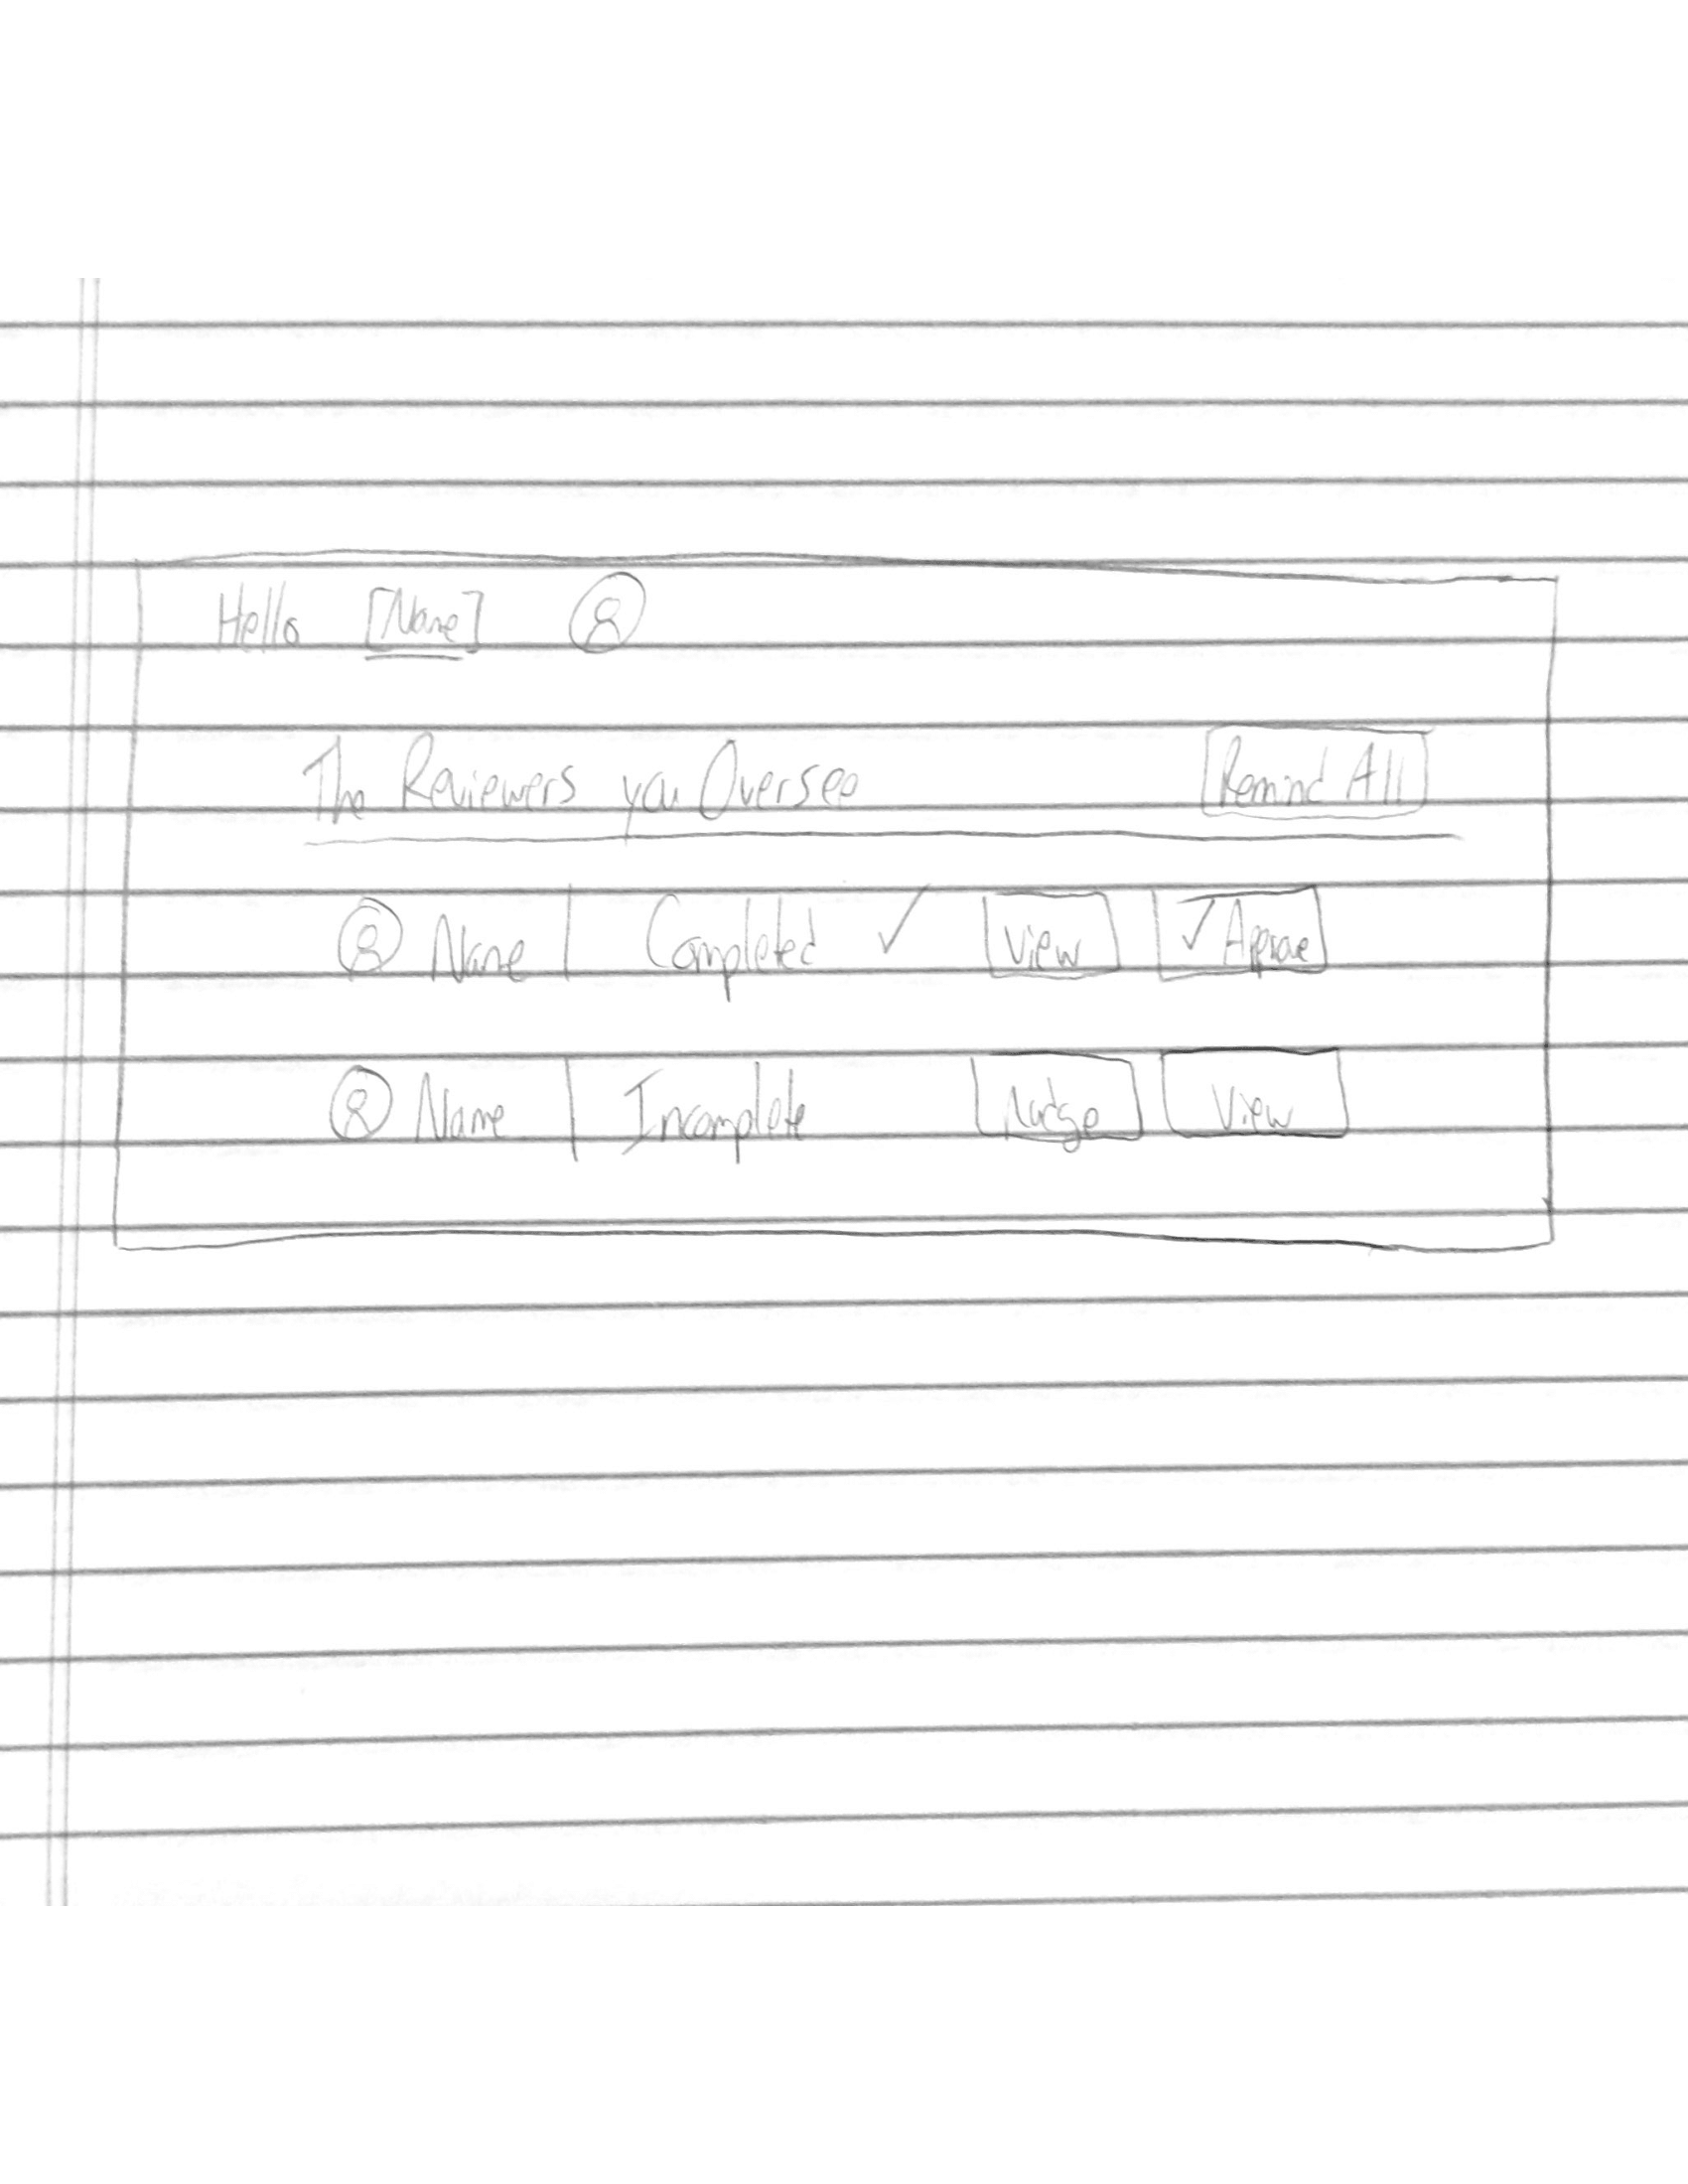 Hello [Name]
The Reviewers you Oversee Remind All
Name Completed ✓ View ✓ Approve
Name Incomplete Nudge View